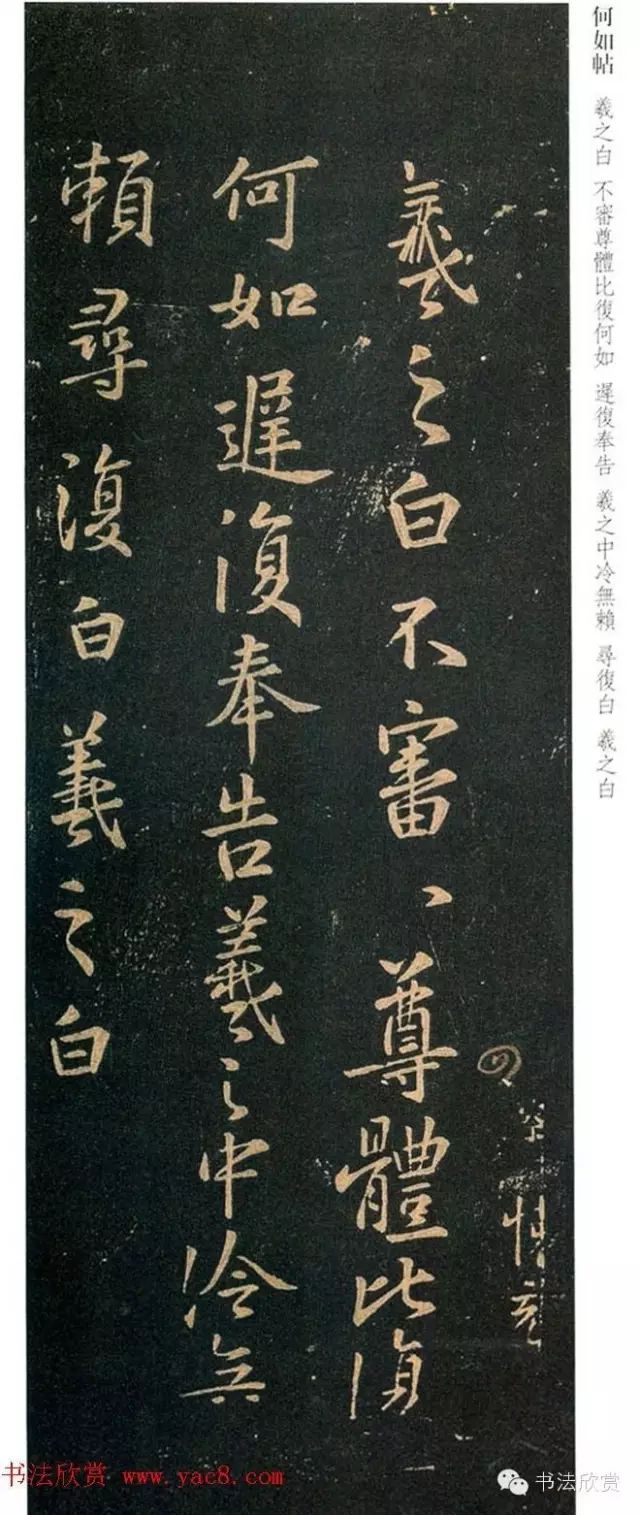 何如帖 羲之白 不審尊體比復何如 遲復奉告 羲之中冷無賴 尋復白 羲之白
羲之白不審、尊體比復
何如遲復奉告羲之中冷無
賴尋復白羲之白
书法欣赏 www.yac8.com
书法欣赏